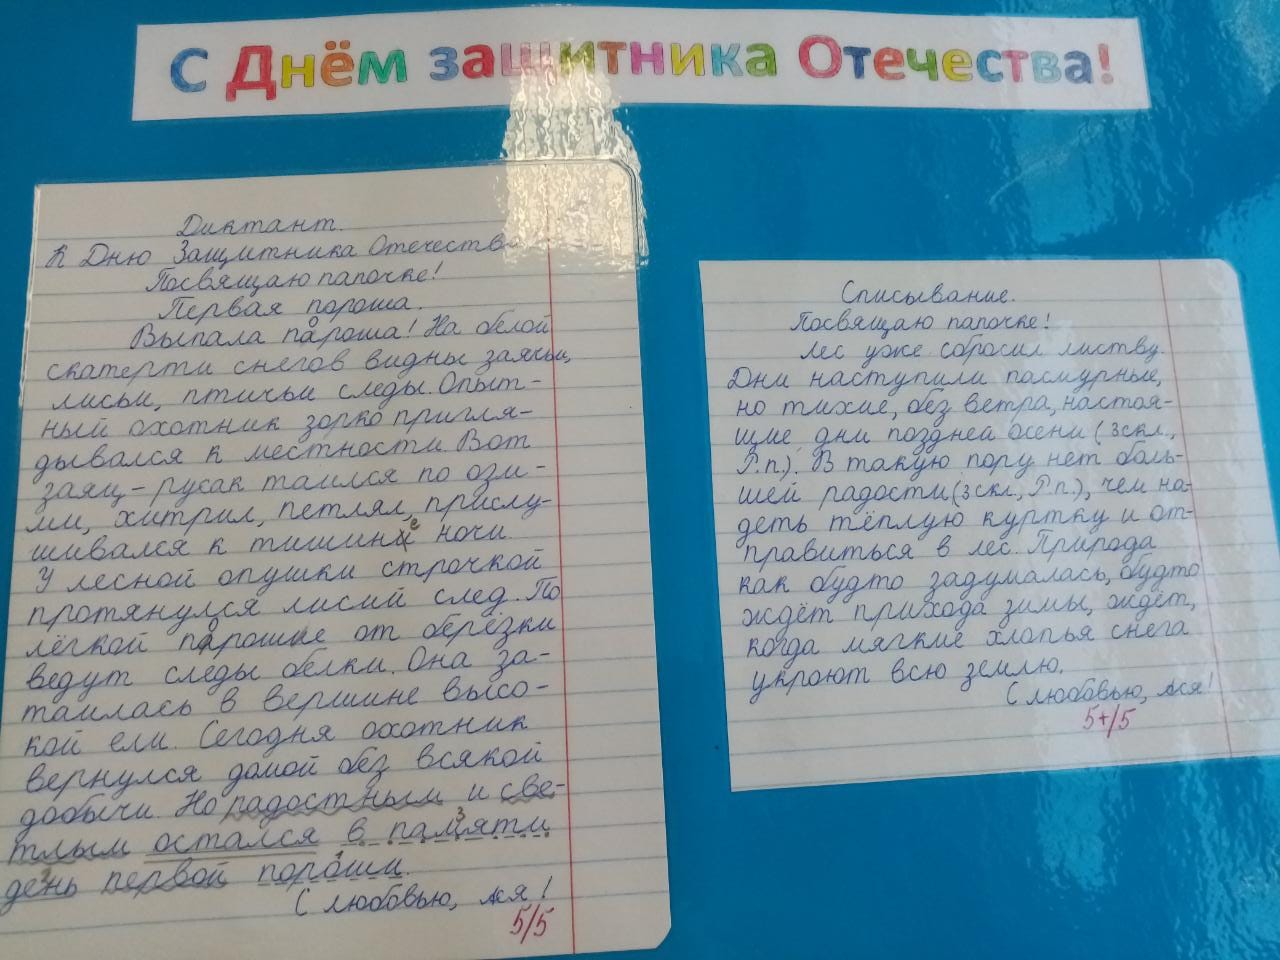 С Днём защитника Отечества!
Диктант.
К Дню Защитника Отечества
Посвящаю папочке!
Первая пороша.
Выпала пороша! На белой
скатерти снегов видны заячьи,
лисьи, птичьи следы. Опыт-
ный охотник зорко пригля-
дывался к местности. Вот
заяц-русак таился по ози-
ми, хитрил, петлял, прислу-
шивался к тишине ночи.
У лесной опушки строчкой
протянулся лисий след. По
лёгкой пороше от берёзки
ведут следы белки. Она за-
таилась в вершине высо-
кой ели. Сегодня охотник
вернулся домой без всякой
добычи. Но радостным и све-
тлым остался в памяти
день первой пороши.
С любовью, Ася!
5/5
Списывание.
Посвящаю папочке!
Лес уже сбросил листву.
Дни наступили пасмурные,
но тихие, без ветра, настоя-
щие дни поздней осени (3скл.,
Р.п.). В такую пору нет боль-
шей радости (3скл., Р.п.), чем на-
деть тёплую куртку и от-
правиться в лес. Природа
как будто задумалась, будто
ждёт прихода зимы, ждёт,
когда мягкие хлопья снега
укроют всю землю.
С любовью, Ася!
5+/5